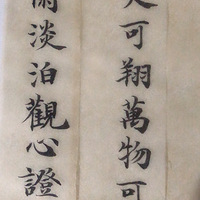 可翔萬物可
淡泊觀心證